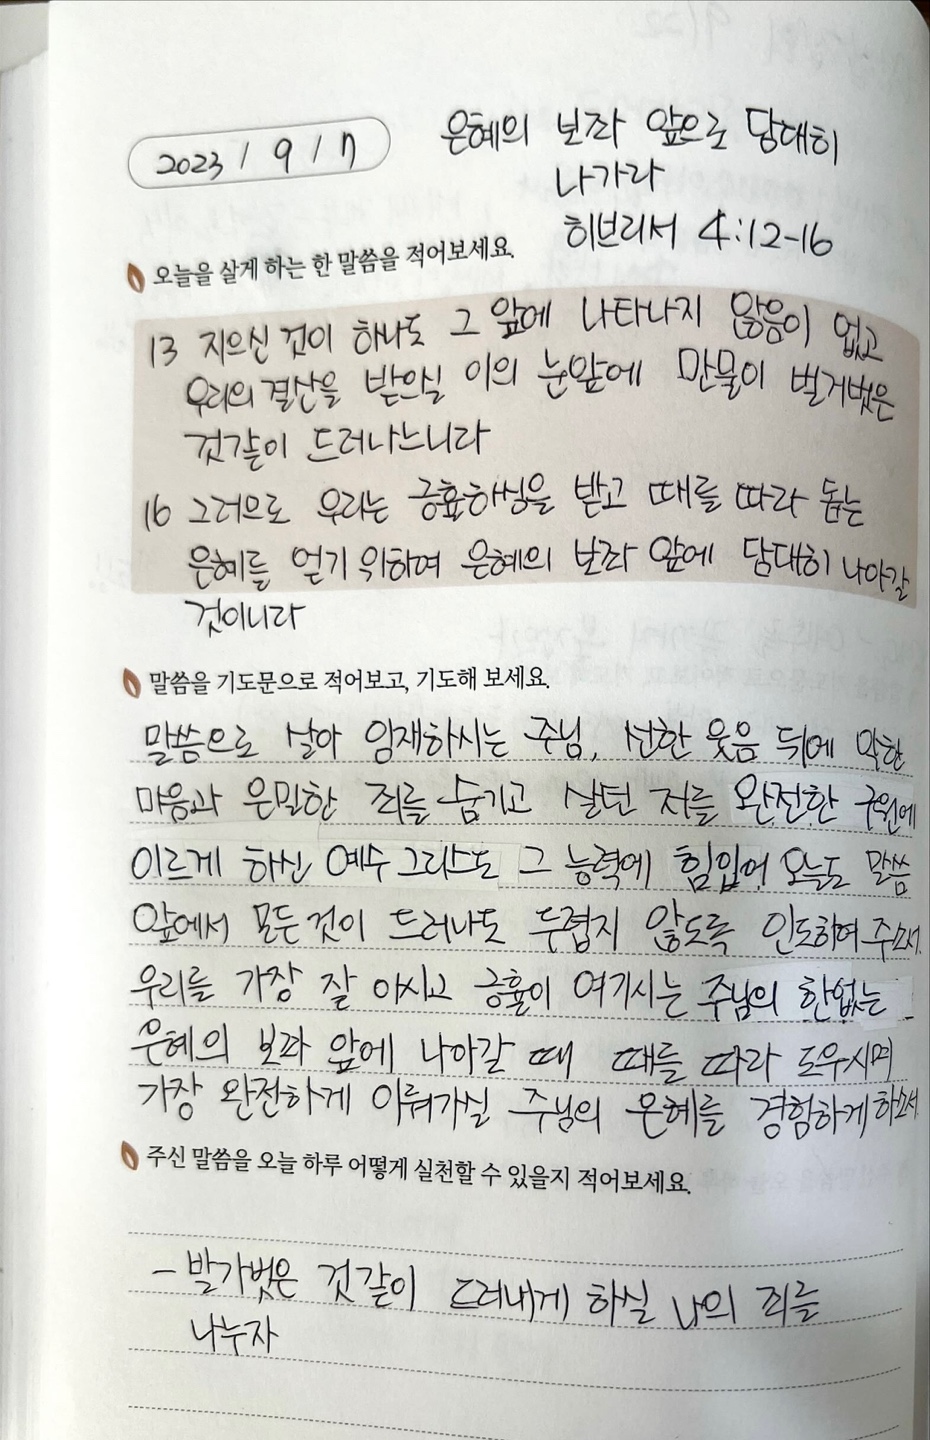 2023 / 9 / 7
은혜의 보좌 앞으로 담대히
나가라
히브리서 4:12-16
오늘을 살게 하는 한 말씀을 적어보세요.
13 지으신 것이 하나도 그 앞에 나타나지 않음이 없고
우리의 결산을 받으실 이의 눈앞에 만물이 벌거벗은
것같이 드러나느니라
16 그러므로 우리는 긍휼하심을 받고 때를 따라 돕는
은혜를 얻기 위하여 은혜의 보좌 앞에 담대히 나아갈
것이니라
말씀을 기도문으로 적어보고, 기도해 보세요.
말씀으로 날아 임재하시는 주님, 선한 웃음 뒤에 악한
마음과 은밀한 죄를 숨기고 살던 저를 완전한 구원에
이르게 하신 예수 그리스도 그 능력에 힘입어 오늘도 말씀
앞에서 모든 것이 드러나도 두렵지 않도록 인도하여 주소서.
우리를 가장 잘 아시고 긍휼이 여기시는 주님의 한없는
은혜의 보좌 앞에 나아갈 때 때를 따라 도우시며
가장 완전하게 이뤄가실 주님의 은혜를 경험하게 하소서
주신 말씀을 오늘 하루 어떻게 실천할 수 있을지 적어보세요.
- 발가벗은 것 같이 드러내게 하실 나의 죄를
나누자